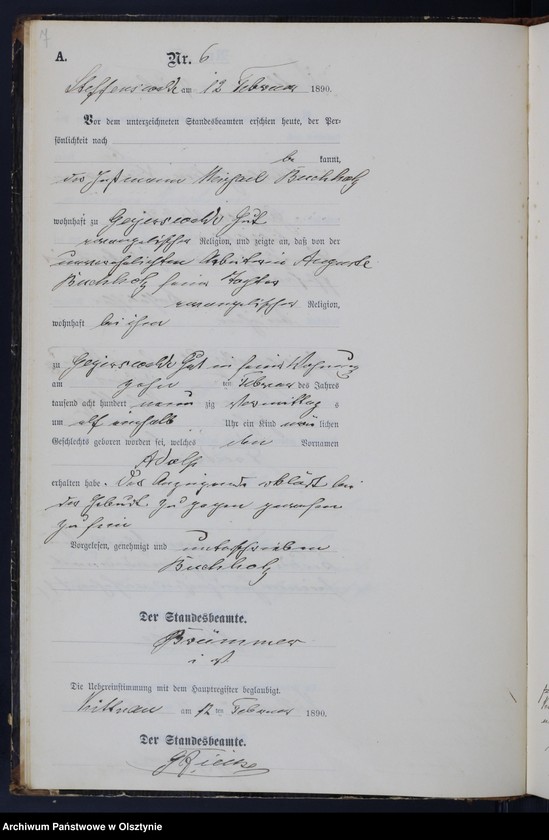 7
A. Nr. 6
Steffenswalde am 12 Februar 1890.
Vor dem unterzeichneten Standesbeamten erschien heute, der Per-
sönlichkeit nach
be kannt,
der Instmann Michael Buchholz
wohnhaft zu Geyerswalde Gut
evangelischer Religion, und zeigte an, daß von der
unverehelichten Arbeiterin Auguste
Buchholz seiner Tochter
evangelischer Religion,
wohnhaft bei ihm
zu Geyerswalde Gut in seiner Wohnung
am zehn ten Februar des Jahres
tausend acht hundert neun zig Vormittag s
um elf einhalb Uhr ein Kind männ lichen
Geschlechts geboren worden sei, welches den Vornamen
Adolf
erhalten habe. Der Anzeigende erklärt bei
der Geburt zugegen gewesen
zu sein
Vorgelesen, genehmigt und unterschrieben
Buchholz
Der Standesbeamte.
Brümmer
i V
Die Uebereinstimmung mit dem Hauptregister beglaubigt.
am 12 ten Februar 1890.
Der Standesbeamte.
Archiwum Państwowe w Olsztynie